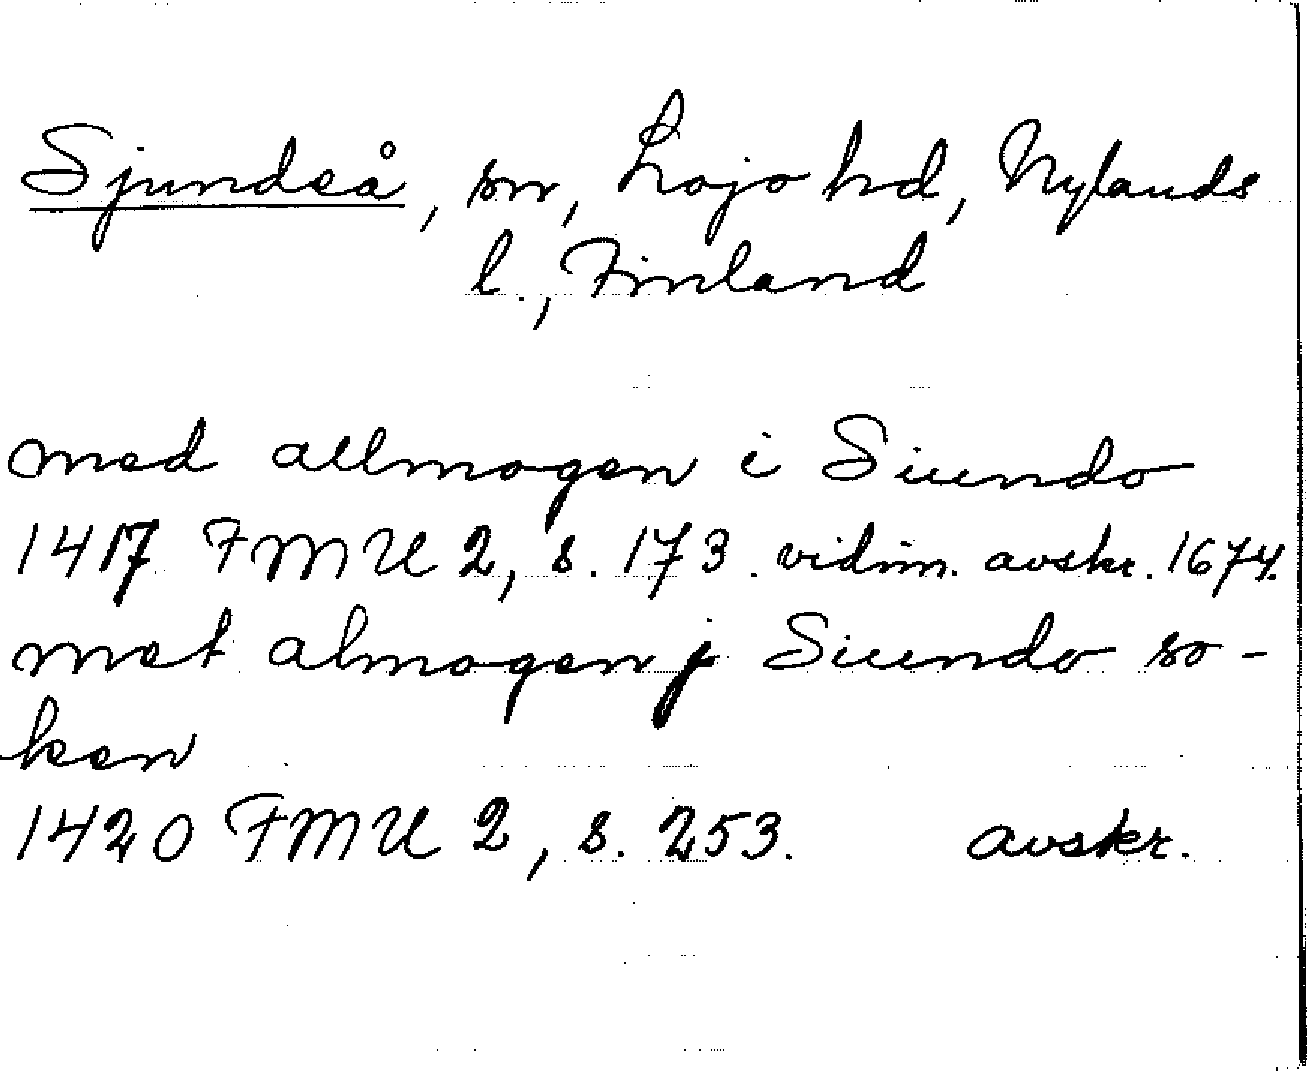 Sjundeå, sn, Lojo hd, Nylands
l., Finland
med allmogen i Siundo
1417 FMU 2, s. 173. vidim. avskr. 1674.
met almogen j Siundo so-
ken
1420 FMU 2, s. 253. avskr.